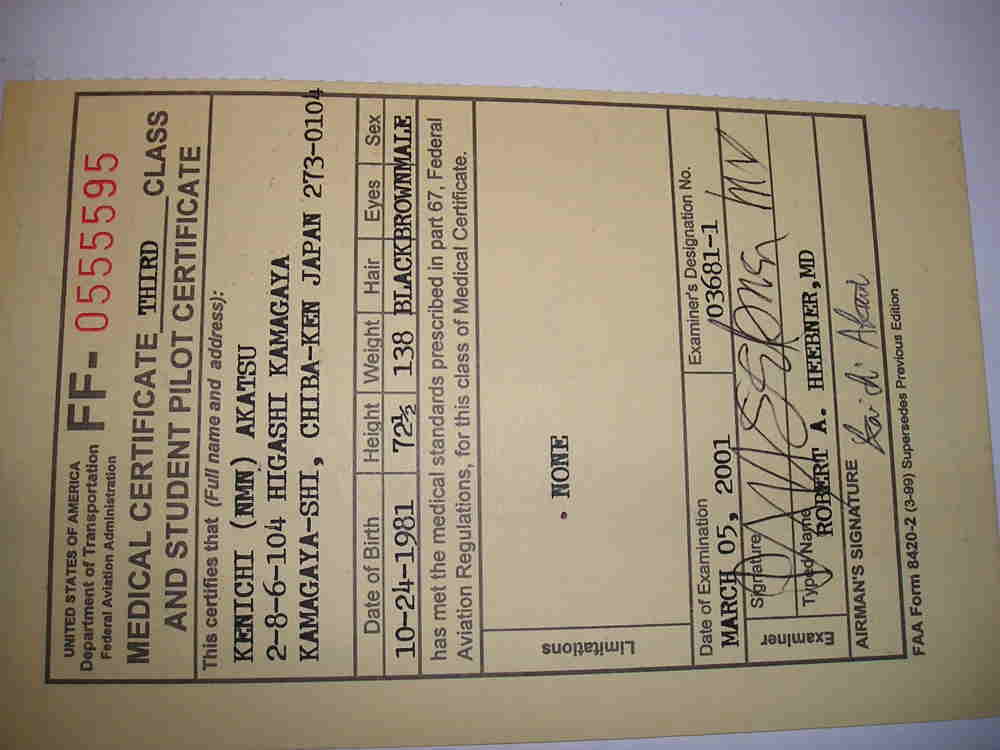 UNITED STATES OF AMERICA
Department of Transportation
Federal Aviation Administration
FF- 0555595
MEDICAL CERTIFICATE THIRD CLASS
AND STUDENT PILOT CERTIFICATE
This certifies that (Full name and address):
KENICHI (NMN) AKATSU
2-8-6-104 HIGASHI KAMAGAYA
KAMAGAYA-SHI, CHIBA-KEN JAPAN 273-0104
Date of Birth Height Weight Hair Eyes Sex
10-24-1981 72½ 138 BLACK BROWN MALE
has met the medical standards prescribed in part 67, Federal
Aviation Regulations, for this class of Medical Certificate.
Limitations
. NONE
Date of Examination Examiner's Designation No.
MARCH 05, 2001 03681-1
Examiner
Signature
Typed Name
ROBERT A. HEEBNER, MD
AIRMAN'S SIGNATURE
FAA Form 8420-2 (3-99) Supersedes Previous Edition